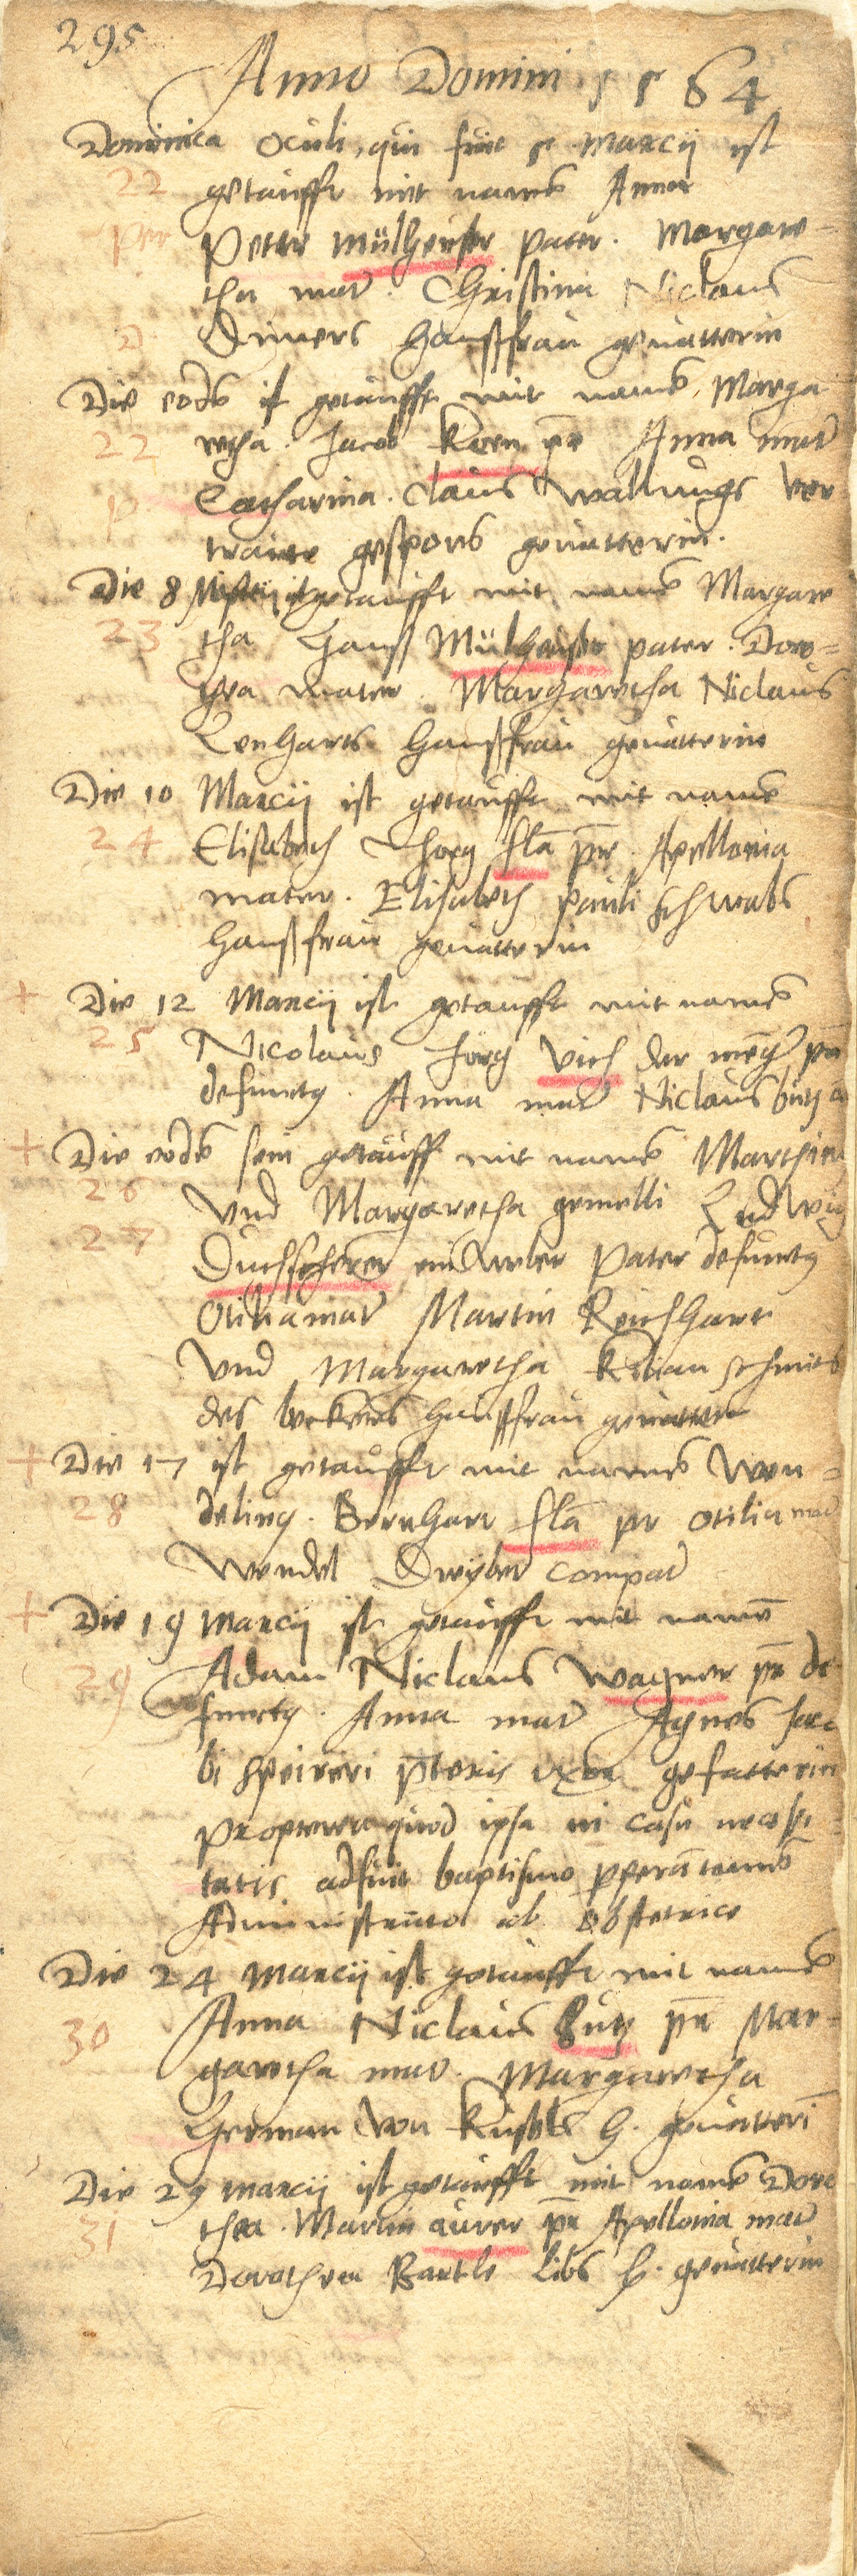 295
Anno Domini 1564
Dominica Oculi, qui fuit 5 Marcij ist
22 getaufft mit namē Anna
Peter Mülheuser pater. Margare-
tha mat. Christina Niclaus
Dimers haußfrau gevatterin
Die eodē ist getaufft mit namē Marga
22 retha. Jacob Kern pr Anna mat
Catharina. Claus Wallungs ver
traute gespons gevatterin.
Die 8 Martij ist getaufft mit namē Margare
23 tha Hanß Mülheuser pater. Doro=
thea mater. Margaretha Niclaus
Lenharts haußfrau gevatterin
Die 10 Marcij ist getaufft mit namē
24 Elisabeth Jorg pr. Apellonia
mater. Elisabeth Pauli Schwabs
haußfrau gevatterin
+ Die 12 Marcij ist getaufft mit namē
25 Nicolaus Jörg Vich der pr
defunctꝯ. Anna mat Niclaus butz
+ Die eodē sein getauff mit namē Marthin
26 Und Margaretha gemelli Ludwig
27 Duchscherer pater defunctꝯ
Otilia mat Martin Reichhart
Und Margaretha Kilian schmits
des beckers haußfrau gevatterin
+ Die 17 ist getaufft mit namē Wen=
28 delinꝯ. Bernhart pr Otilia mat
Wendel Dreyber compat
+ Die 19 Marcij ist getaufft mit namē
29 Adam Niclaus Wagner pr de
functꝯ. Anna mat Agnes Jaco
bi Speireri p̄toris uxor gefatterin
propterea quod ipsa in casu necessi
tatis adfuit baptismo
Administrato ab obstetrice
Die 24 Marcij ist getaufft mit namē
30 Anna Niclaus Butz pr Mar=
garetha mat. Margaretha
German von Kusels h. gevatterī
Die 29 Marcij ist getaufft mit namē Doro
31 thea. Martin aurer pr Apellonia mat
Dorothea Bartle Libs h. gevatterin